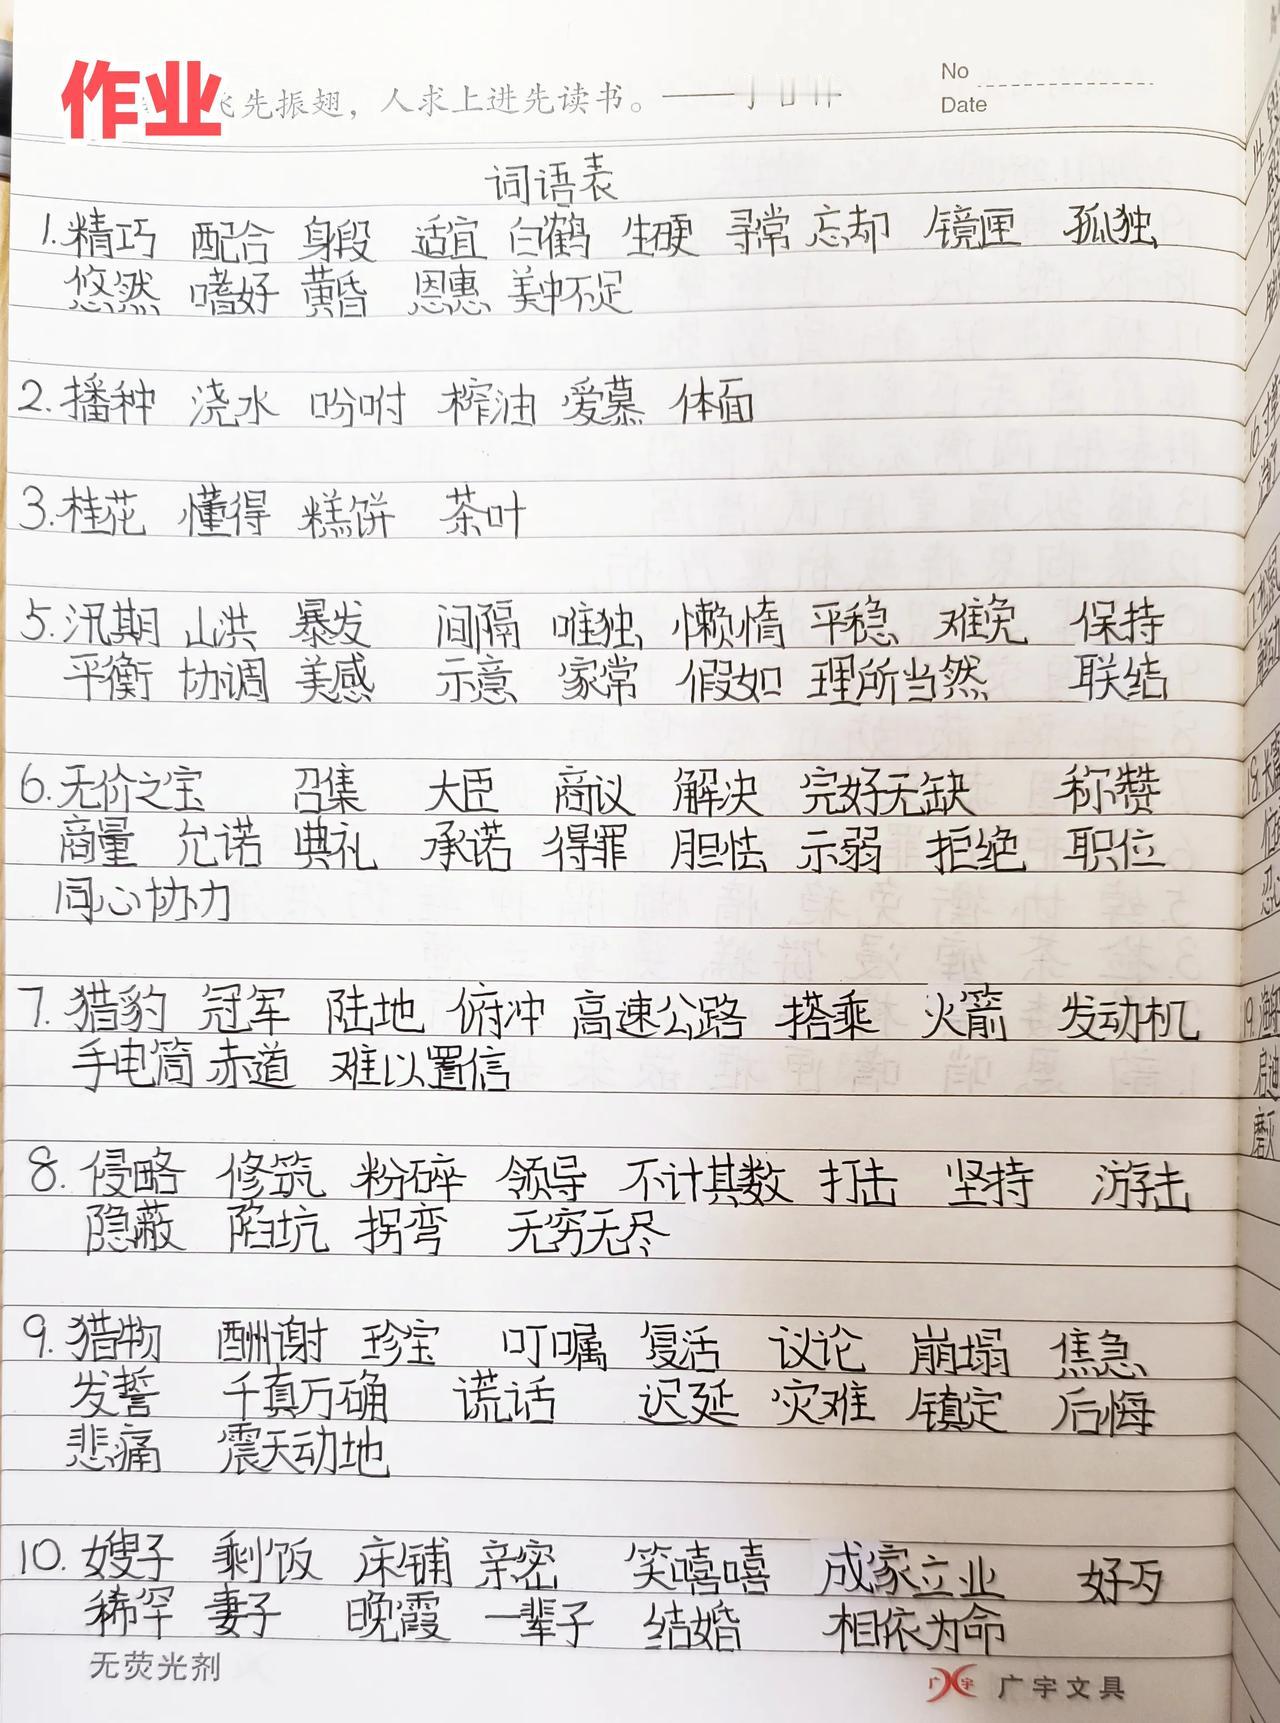 作业
飞先振翅，人求上进先读书。
No
Date
词语表
1.精巧 配合 身段 适宜 白鹤 生硬 寻常 忘却 镜匣 孤独
悠然 嗜好 黄昏 恩惠 美中不足
2.播种 浇水 吩咐 榨油 爱慕 体面
3.桂花 懂得 糕饼 茶叶
5.汛期 山洪 暴发 间隔 唯独 懒惰 平稳 难免 保持
平衡 协调 美感 示意 家常 假如 理所当然 联结
6.无价之宝 召集 大臣 商议 解决 完好无缺 称赞
商量 允诺 典礼 承诺 得罪 胆怯 示弱 拒绝 职位
同心协力
7.猎豹 冠军 陆地 俯冲 高速公路 搭乘 火箭 发动机
手电筒 赤道 难以置信
8.侵略 修筑 粉碎 领导 不计其数 打击 坚持 游击
隐蔽 陷坑 拐弯 无穷无尽
9.猎物 酬谢 珍宝 叮嘱 复活 议论 崩塌 焦急
发誓 千真万确 谎话 迟延 灾难 镇定 后悔
悲痛 震天动地
10.嫂子 剩饭 床铺 亲密 笑嘻嘻 成家立业 好歹
稀罕 妻子 晚霞 一辈子 结婚 相依为命
无荧光剂
广宇文具